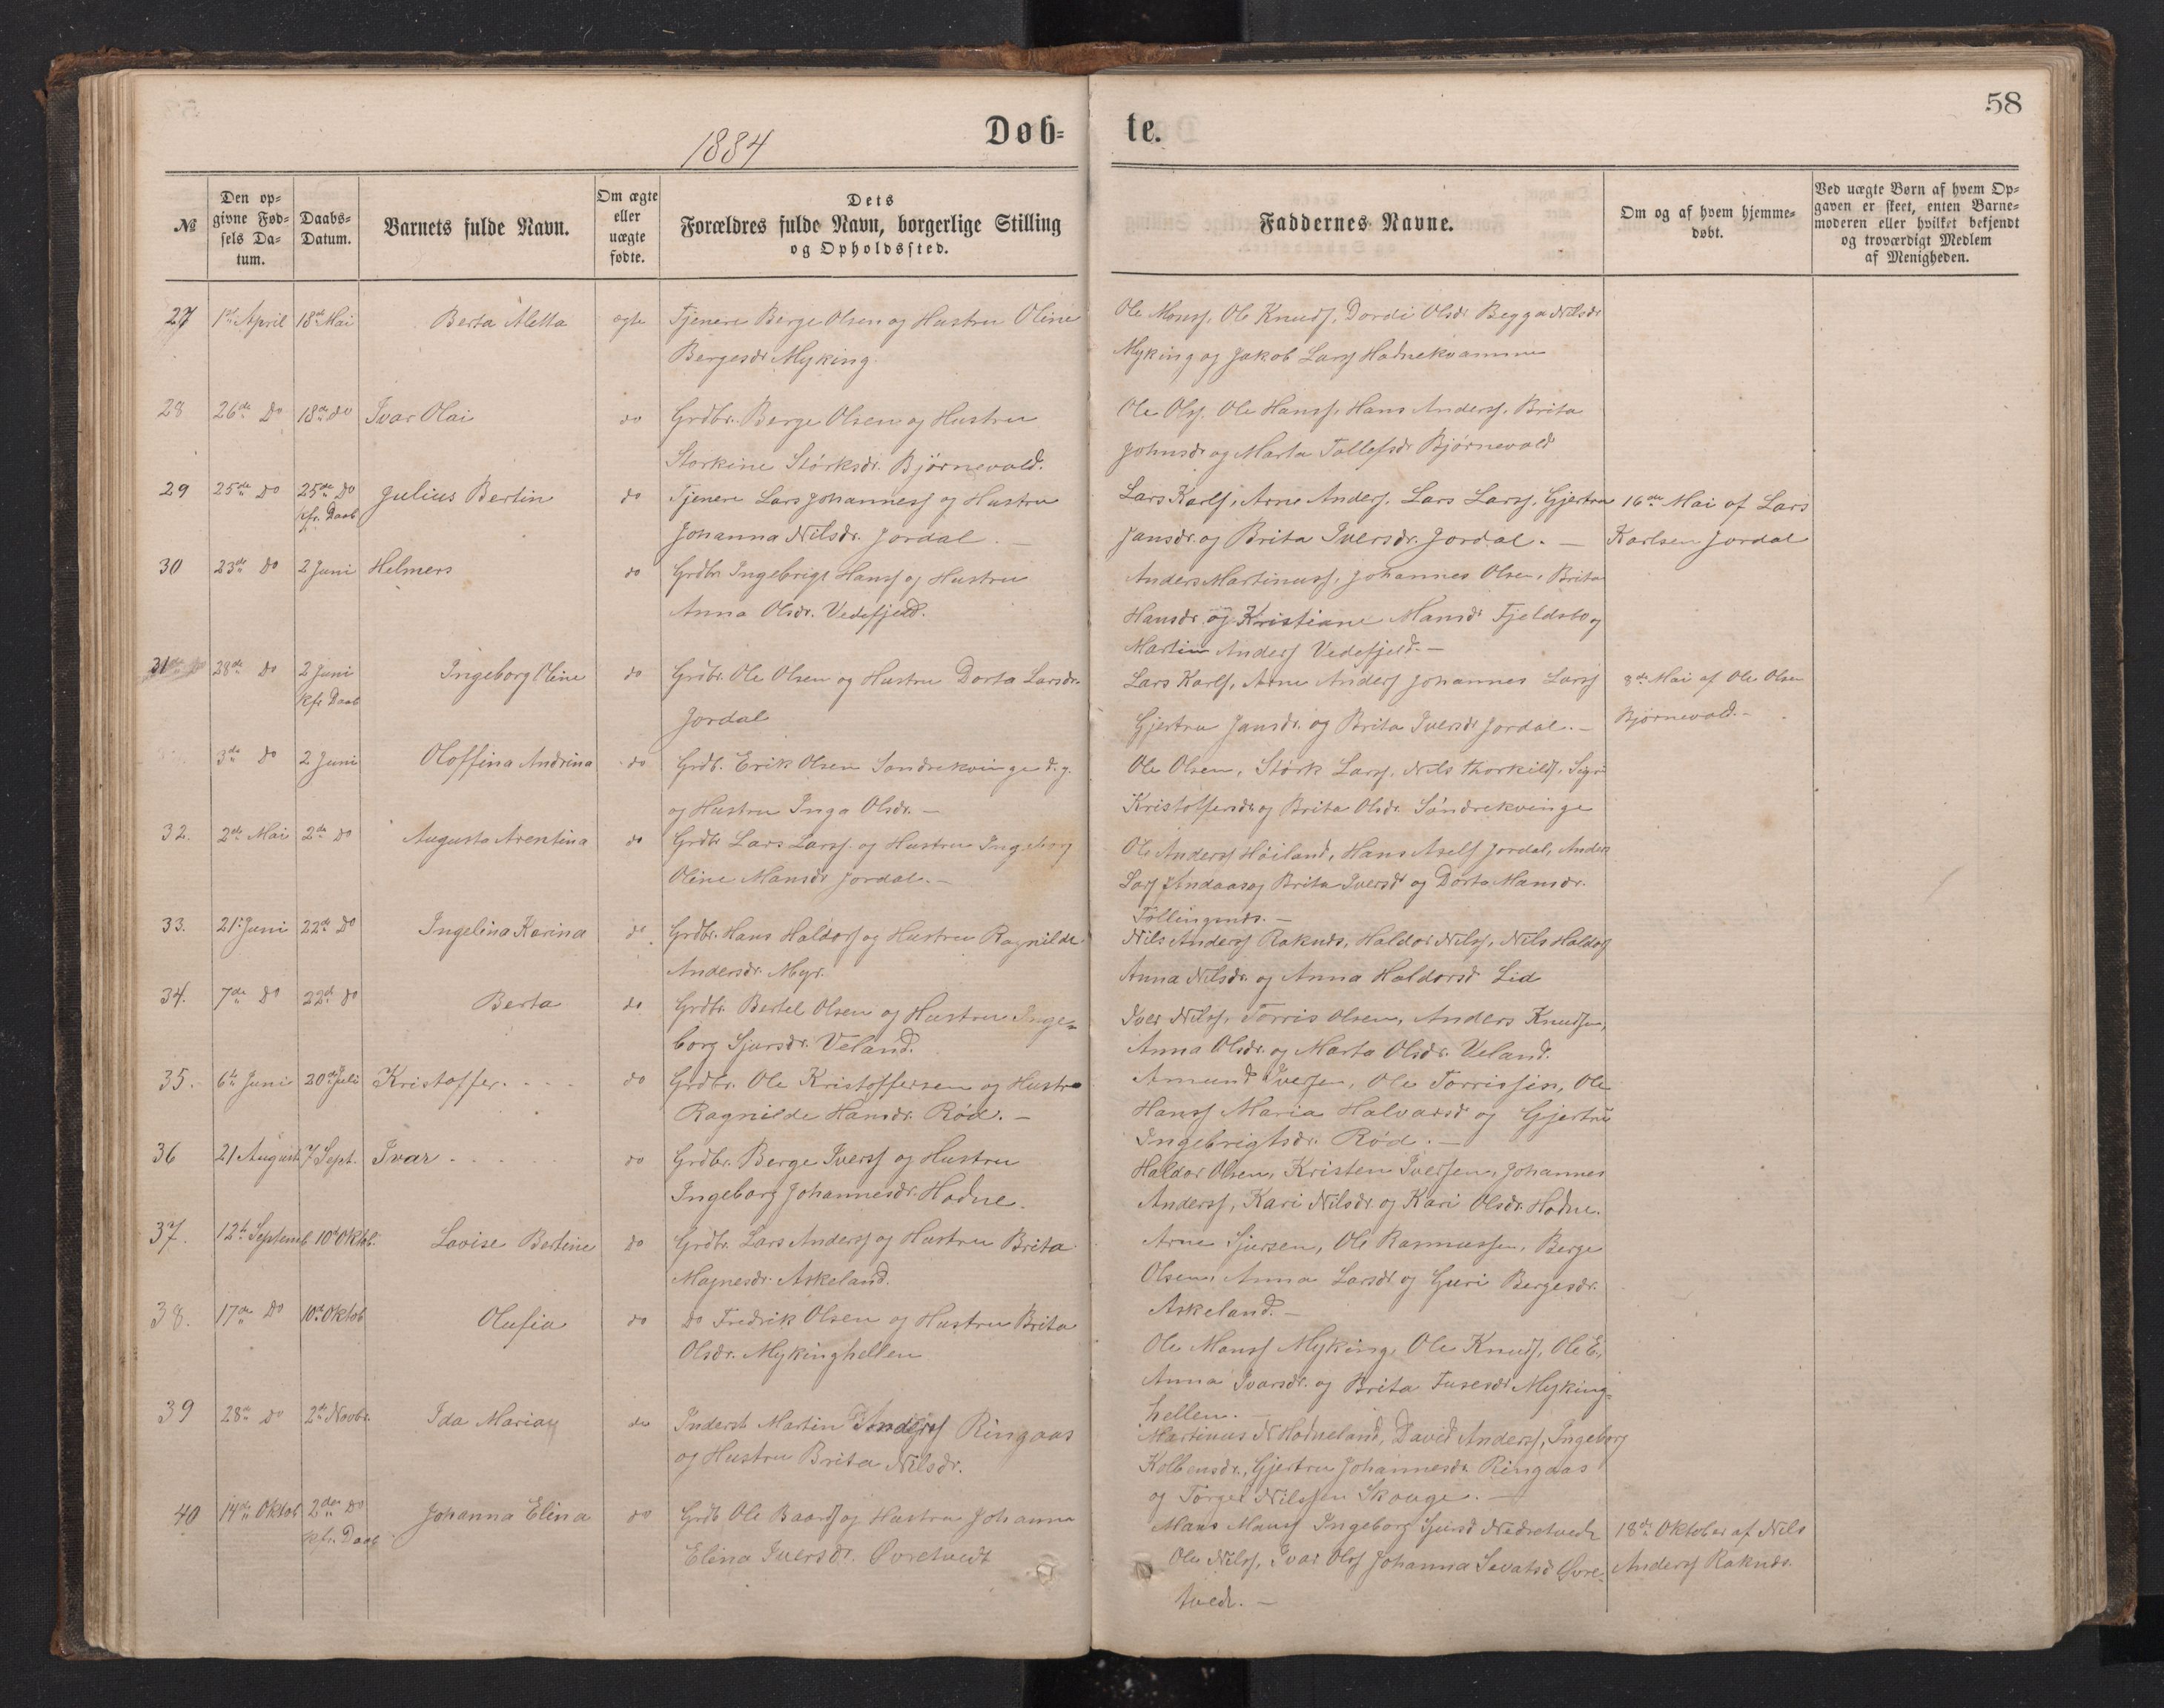 58
1884
Døb=
te.
№
Den op=
givne Fød=
sels Da=
tum.
Daabs=
Datum.
Barnets fulde Navn.
Om ægte
eller
uægte
fødte.
Dets
Forældres fulde Navn, borgerlige Stilling
og Opholdssted.
Faddernes Navne.
Om og af hvem hjemme=
døbt.
Ved uægte Børn af hvem Op=
gaven er skeet, enten Barne=
moderen eller hvilket bekjendt
og troværdigt Medlem
af Menigheden.
27 1ste April 18de Mai Berta Aletta ægte Tjenere Berge Olsen og Hustru Oline
Bergesdr Myking.
Ole Monss. Ole Knuds. Dordi Olsdr Begga Nilsdr
Myking og Jakob Larss Hodnekvamme
28 26de do 18de do Ivar Olai do Grdbr. Berge Olsen og Hustru
Storkine Størksdr. Bjørnevold.
Ole Ols. Ole Hanss, Hans Anderss. Brita
Johnsdr og Marta Tollefsdr Bjørnevold
29 25de do 25de do Julius Bertin do Tjenere Lars Johanness og Hustru
kfr. Daab
Johanna Nilsdr. Jordal. —
Lars Karls, Arne Anders. Lars Larss, Gjertru
Jansdr. og Brita Iversdr. Jordal. —
16de Mai af Lars
Karlsen Jordal
30 23de do 2 Juni Helmers do Grdbr Ingebrigt Hanss og Hustru
Anna Olsdr. Vedefjeld.
Anders Martinuss, Johannes Olsen, Brita
Hansdr og Kristiane Mansdr Fjeldsto og
Martin Anderss Vedefjeld. —
31 28de do 2 Juni Ingeborg Oline do Grdbr. Ole Olsen og Hustru Dorta Larsdr.
kfr Daab
Jordal
Lars Karls, Arne Anderss Johannes Larss
Gjertru Jansdr. og Brita Iversdr Jordal. —
3de Mai af Ole Olsen
Bjørnevold. —
3de do 2 Juni Oloffina Andrina do Grdb. Erik Olsen Søndrekvinge d. y.
og Hustru Inga Olsdr. —
Ole Olsen, Størk Larss, Nils Thorkilds, Sigri
Kristoffersdr og Brita Olsdr. Søndrekvinge
32. 2de Mai 2de do Augusta Arentina do Grdbr Lars Larss. og Hustru Ingeborg
Oline Mansdr Jordal. —
Ole Anderss Høiland, Hans Axels Jordal, Anders
Larss Andaas og Brita Iversdr og Dorta Mansdr.
33. 21 Juni 22de do Ingelina Karina do Grdbr. Hans Haldors og Hustru Ragnilde
Andersdr. Myr.
Nils Anderss Raknes, Haldor Nilss, Nils Haldors
Anna Nilsdr. og Anna Haldorsd Lid
34. 7de do 22d do Berta do Grdbr. Bertel Olsen og Hustru Inge=
borg Sjursdr. Veland.
Iver Nilss, Torris Olsen, Anders Knudsen,
Anna Olsdr. og Marta Olsdr. Veland.
35. 6te Juni 20de Juli Kristoffer. do Grdbr. Ole Kristoffersen og Hustru
Ragnilde Hansdr. Rød. —
Amund Iversen, Ole Torrissen, Ole
Hanss Maria Halvarsd og Gjertru
Ingebrigtsdr. Rød. —
36 21 August 7 Sept. Ivar do Grdbr. Berge Iverss og Hustru
Ingeborg Johannesdr. Hodne.
Haldor Olsen, Kristen Iversen, Johannes
Anderss, Kari Nilsdr. og Kari Olsdr. Hodne.
37. 12te Septemb 10de Oktob. Lovise Bertine do Grdbr. Lars Anderss og Hustru Brita
Magnesdr. Askeland.
Arne Sjursen, Ole Rasmussen, Berge
Olsen, Anna Larsdr og Guri Bergesdr.
Askeland. —
38. 17de do 10de Oktob Olufia do do Fredrik Olsen og Hustru Brita
Olsdr. Mykinghellen
Ole Monss Myking, Ole Knuds, Ole E,
Anna Ivarsdr. og Brita Tusesdr Myking=
hellen. —
39 28de do 2de Novbr. Ida Maria do Inderst Martin Anderss Ringaas
og Hustru Brita Nilsdr.
Martinus N Hodneland, David Anderss, Ingeborg
Kolbensdr., Gjertru Johannesdr. Ringaas
og Torger Nilssen Skauge. —
40 14de Oktob 2den do Johanna Elina do Grdb Ole Baards og Hustru Johanna
kfr. Daab
Elina Iversdr. Øvretvedt
Mans Manss Ingeborg Sjursd Nedretvedt
Ole Nilss, Ivar Olss Johanna Sevatsd Øvre=
tvedt. —
18de Oktober af Nils
Anderss Raknes.